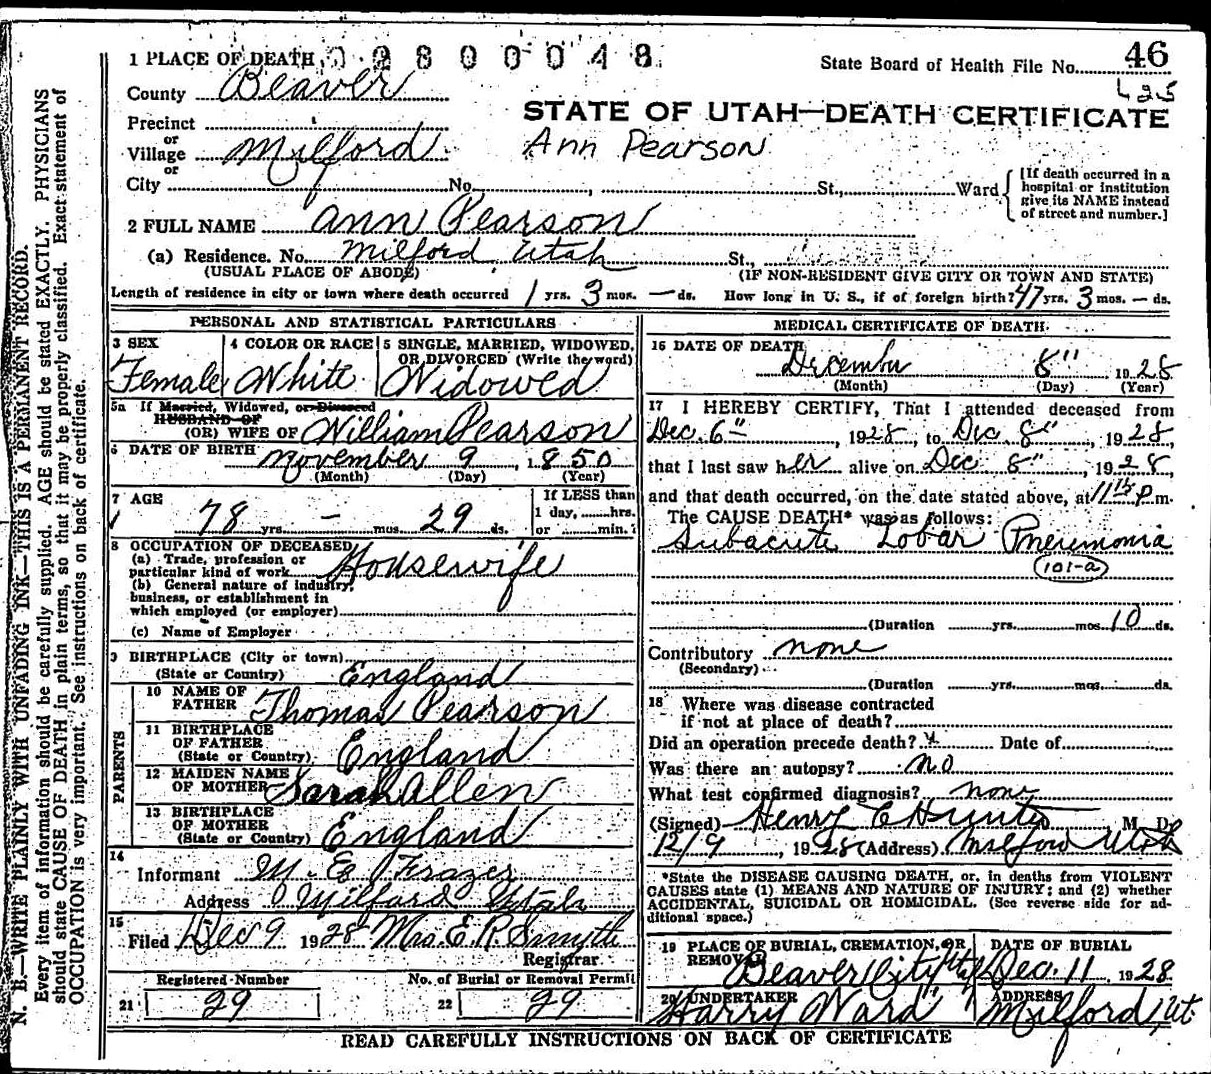 1 PLACE OF DEATH 2800048
State Board of Health File No. 46
County Beaver
425
STATE OF UTAH—DEATH CERTIFICATE
Precinct
or
Village Milford
Ann Pearson
or
City No. , St., Ward
[If death occurred in a
hospital or institution
give its NAME instead
of street and number.]
2 FULL NAME Ann Pearson
(a) Residence. No. Milford, Utah St.,
(USUAL PLACE OF ABODE) (IF NON-RESIDENT GIVE CITY OR TOWN AND STATE)
Length of residence in city or town where death occurred 1 yrs. 3 mos. — ds. How long in U. S., if of foreign birth? 47 yrs. 3 mos. — ds.
PERSONAL AND STATISTICAL PARTICULARS
3 SEX
Female
4 COLOR OR RACE
White
5 SINGLE, MARRIED, WIDOWED,
OR DIVORCED (Write the word)
Widowed
5a If Married, Widowed, or Divorced
HUSBAND OF
(OR) WIFE OF William Pearson
6 DATE OF BIRTH November 9, 1850
(Month) (Day) (Year)
7 AGE
78 yrs. — mos. 29 ds.
If LESS than
1 day, hrs.
or min.
8 OCCUPATION OF DECEASED
(a) Trade, profession or
particular kind of work Housewife
(b) General nature of industry,
business, or establishment in
which employed (or employer)
(c) Name of Employer
9 BIRTHPLACE (City or town)
(State or Country) England
PARENTS
10 NAME OF
FATHER Thomas Pearson
11 BIRTHPLACE
OF FATHER
(State or Country) England
12 MAIDEN NAME
OF MOTHER Sarah Allen
13 BIRTHPLACE
OF MOTHER
(State or Country) England
14
Informant M. E. Frazer
Address Milford Utah
15
Filed Dec 9 1928 Mrs. E. R. Smyth
Registrar
Registered Number No. of Burial or Removal Permit
21 29 22 29
MEDICAL CERTIFICATE OF DEATH
16 DATE OF DEATH
December 8" 1928
(Month) (Day) (Year)
17 I HEREBY CERTIFY, That I attended deceased from
Dec. 6", 1928, to Dec 8", 1928,
that I last saw her alive on Dec 8", 1928,
and that death occurred, on the date stated above, at 11 15 P.m.
The CAUSE DEATH* was as follows:
Subacute Lobar Pneumonia
101-a
(Duration yrs. mos. 10 ds.
Contributory none
(Secondary)
(Duration yrs. mos. ds.
18 Where was disease contracted
if not at place of death?
Did an operation precede death? Date of
Was there an autopsy? no
What test confirmed diagnosis? none
(Signed) Henry C Hunter M. D.
12/9, 1928 (Address) Milford Utah
*State the DISEASE CAUSING DEATH, or, in deaths from VIOLENT
CAUSES state (1) MEANS AND NATURE OF INJURY; and (2) whether
ACCIDENTAL, SUICIDAL OR HOMICIDAL. (See reverse side for ad-
ditional space.)
19 PLACE OF BURIAL, CREMATION, OR
REMOVAL
Beaver City Ut
DATE OF BURIAL
Dec. 11 1928
20 UNDERTAKER
Harry Ward
ADDRESS
Milford, Ut
READ CAREFULLY INSTRUCTIONS ON BACK OF CERTIFICATE
N. B.—WRITE PLAINLY WITH UNFADING INK—THIS IS A PERMANENT RECORD.
Every item of information should be carefully supplied. AGE should be stated EXACTLY. PHYSICIANS
should state CAUSE OF DEATH in plain terms, so that it may be properly classified. Exact statement of
OCCUPATION is very important. See instructions on back of certificate.